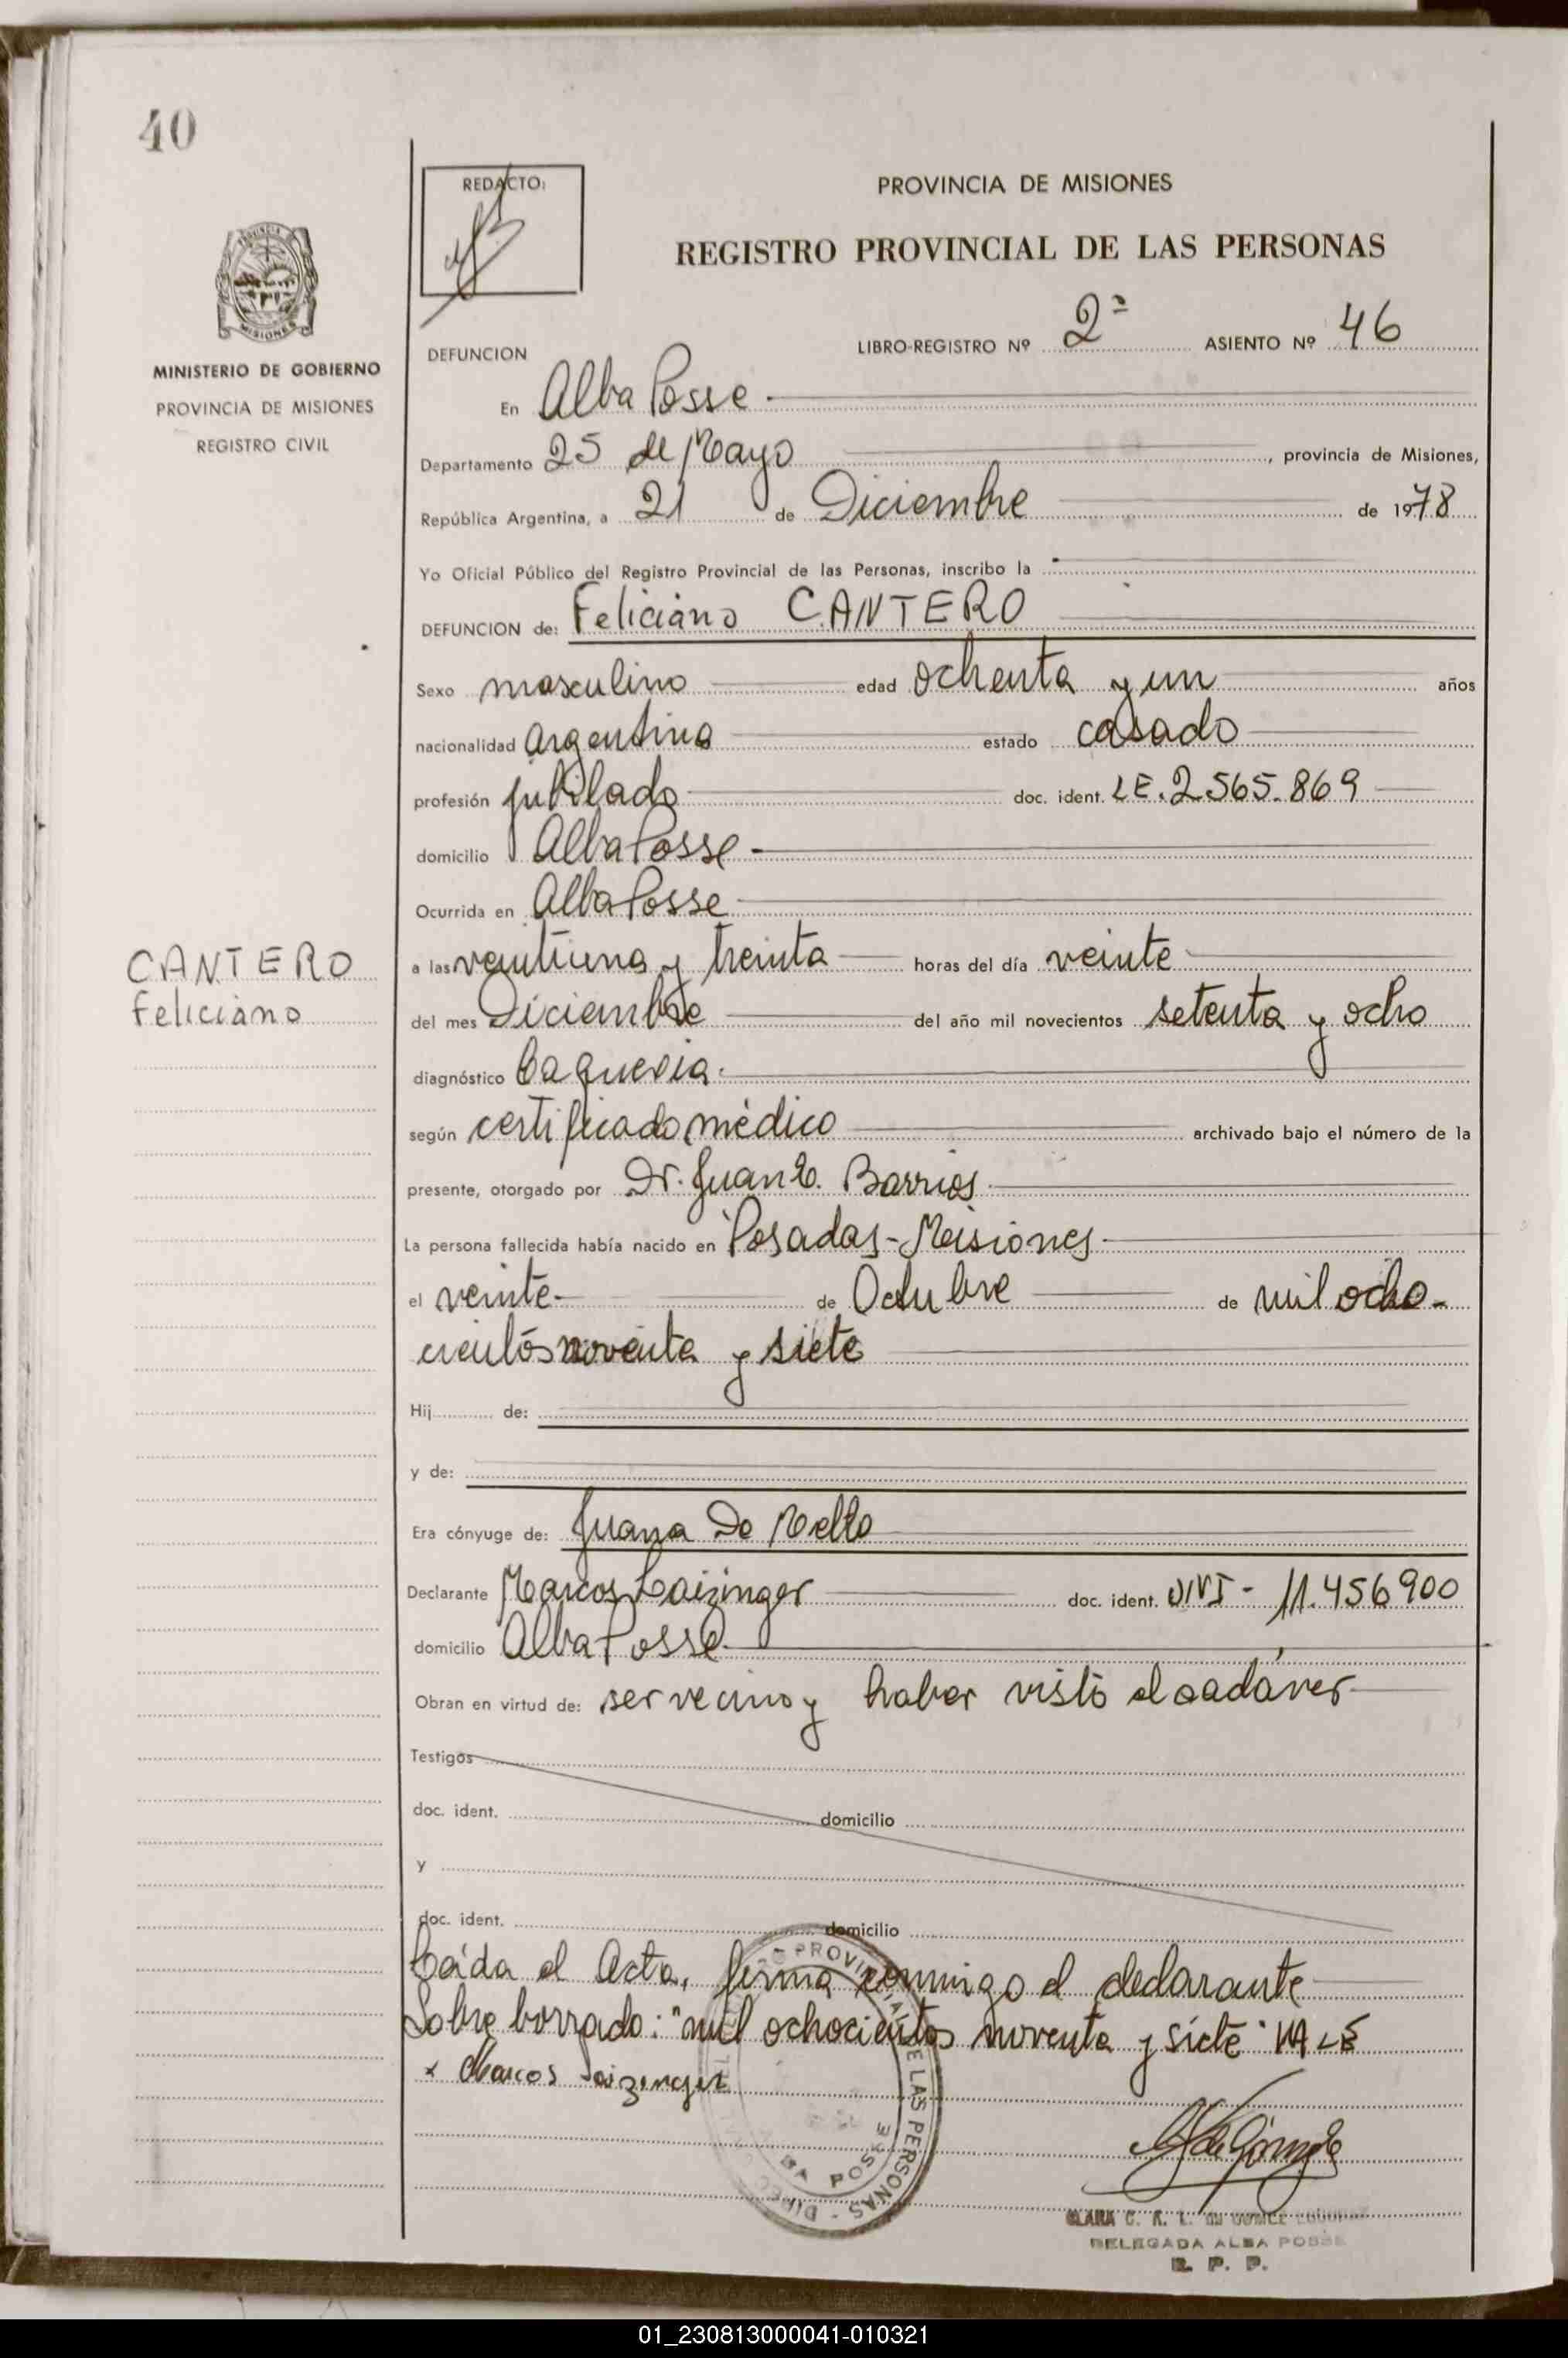 40
REDACTO:
PROVINCIA DE MISIONES
REGISTRO PROVINCIAL DE LAS PERSONAS
MISIONES
MINISTERIO DE GOBIERNO
PROVINCIA DE MISIONES
REGISTRO CIVIL
LIBRO-REGISTRO Nº 2ª ASIENTO Nº 46
DEFUNCION
En Alba Posse.
Departamento 25 de Mayo, provincia de Misiones,
República Argentina, a 21 de Diciembre de 1978
Yo Oficial Público del Registro Provincial de las Personas, inscribo la
DEFUNCION de: Feliciano CANTERO
Sexo masculino edad ochenta y un años
nacionalidad argentina estado casado
profesión jubilado doc. ident. LE. 2.565.869
domicilio Alba Posse.
Ocurrida en Alba Posse
CANTERO
Feliciano
a las veintiuna y treinta horas del día veinte
del mes Diciembre del año mil novecientos setenta y ocho
diagnóstico Caquexia.
según certificado médico archivado bajo el número de la
presente, otorgado por Dr. Juan E. Barrios
La persona fallecida había nacido en Posadas-Misiones
el veinte de Octubre de mil ocho-
cientos noventa y siete
Hij de:
y de:
Era cónyuge de: Juana De Mello
Declarante Marcos Laizinger doc. ident. DNI - 11.456900
domicilio Alba Posse
Obran en virtud de: ser vecino y haber visto el cadáver
Testigos
doc. ident. domicilio
y
doc. ident. domicilio
Leída el Acta, firma conmigo el declarante
Sobre borrado: "mil ochocientos noventa y siete" VALE
x Marcos Laizinger
PROVINCIAL DE LAS PERSONAS
POSSE
CLARA C. R. L. DE
DELEGADA ALBA POSSE
R. P. P.
01_230813000041-010321